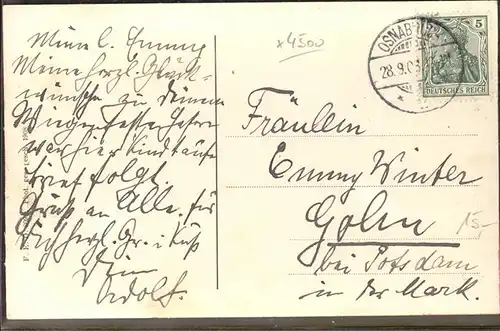 Meine l. Emmy
Meine herzl. Glück-
wünsche zu Deinem
Wiegenfeste. Gestern
war hier Kindtaufe
Brief folgt.
Gruß an Alle. für
Dich herzl. Gr. i. Kuß
Dein
Adolf.
x 4500
OSNABRÜCK
28.9.0
5
DEUTSCHES REICH
Fräulein
Emmy Winter
Golm
bei Potsdam
in der Mark.
15-